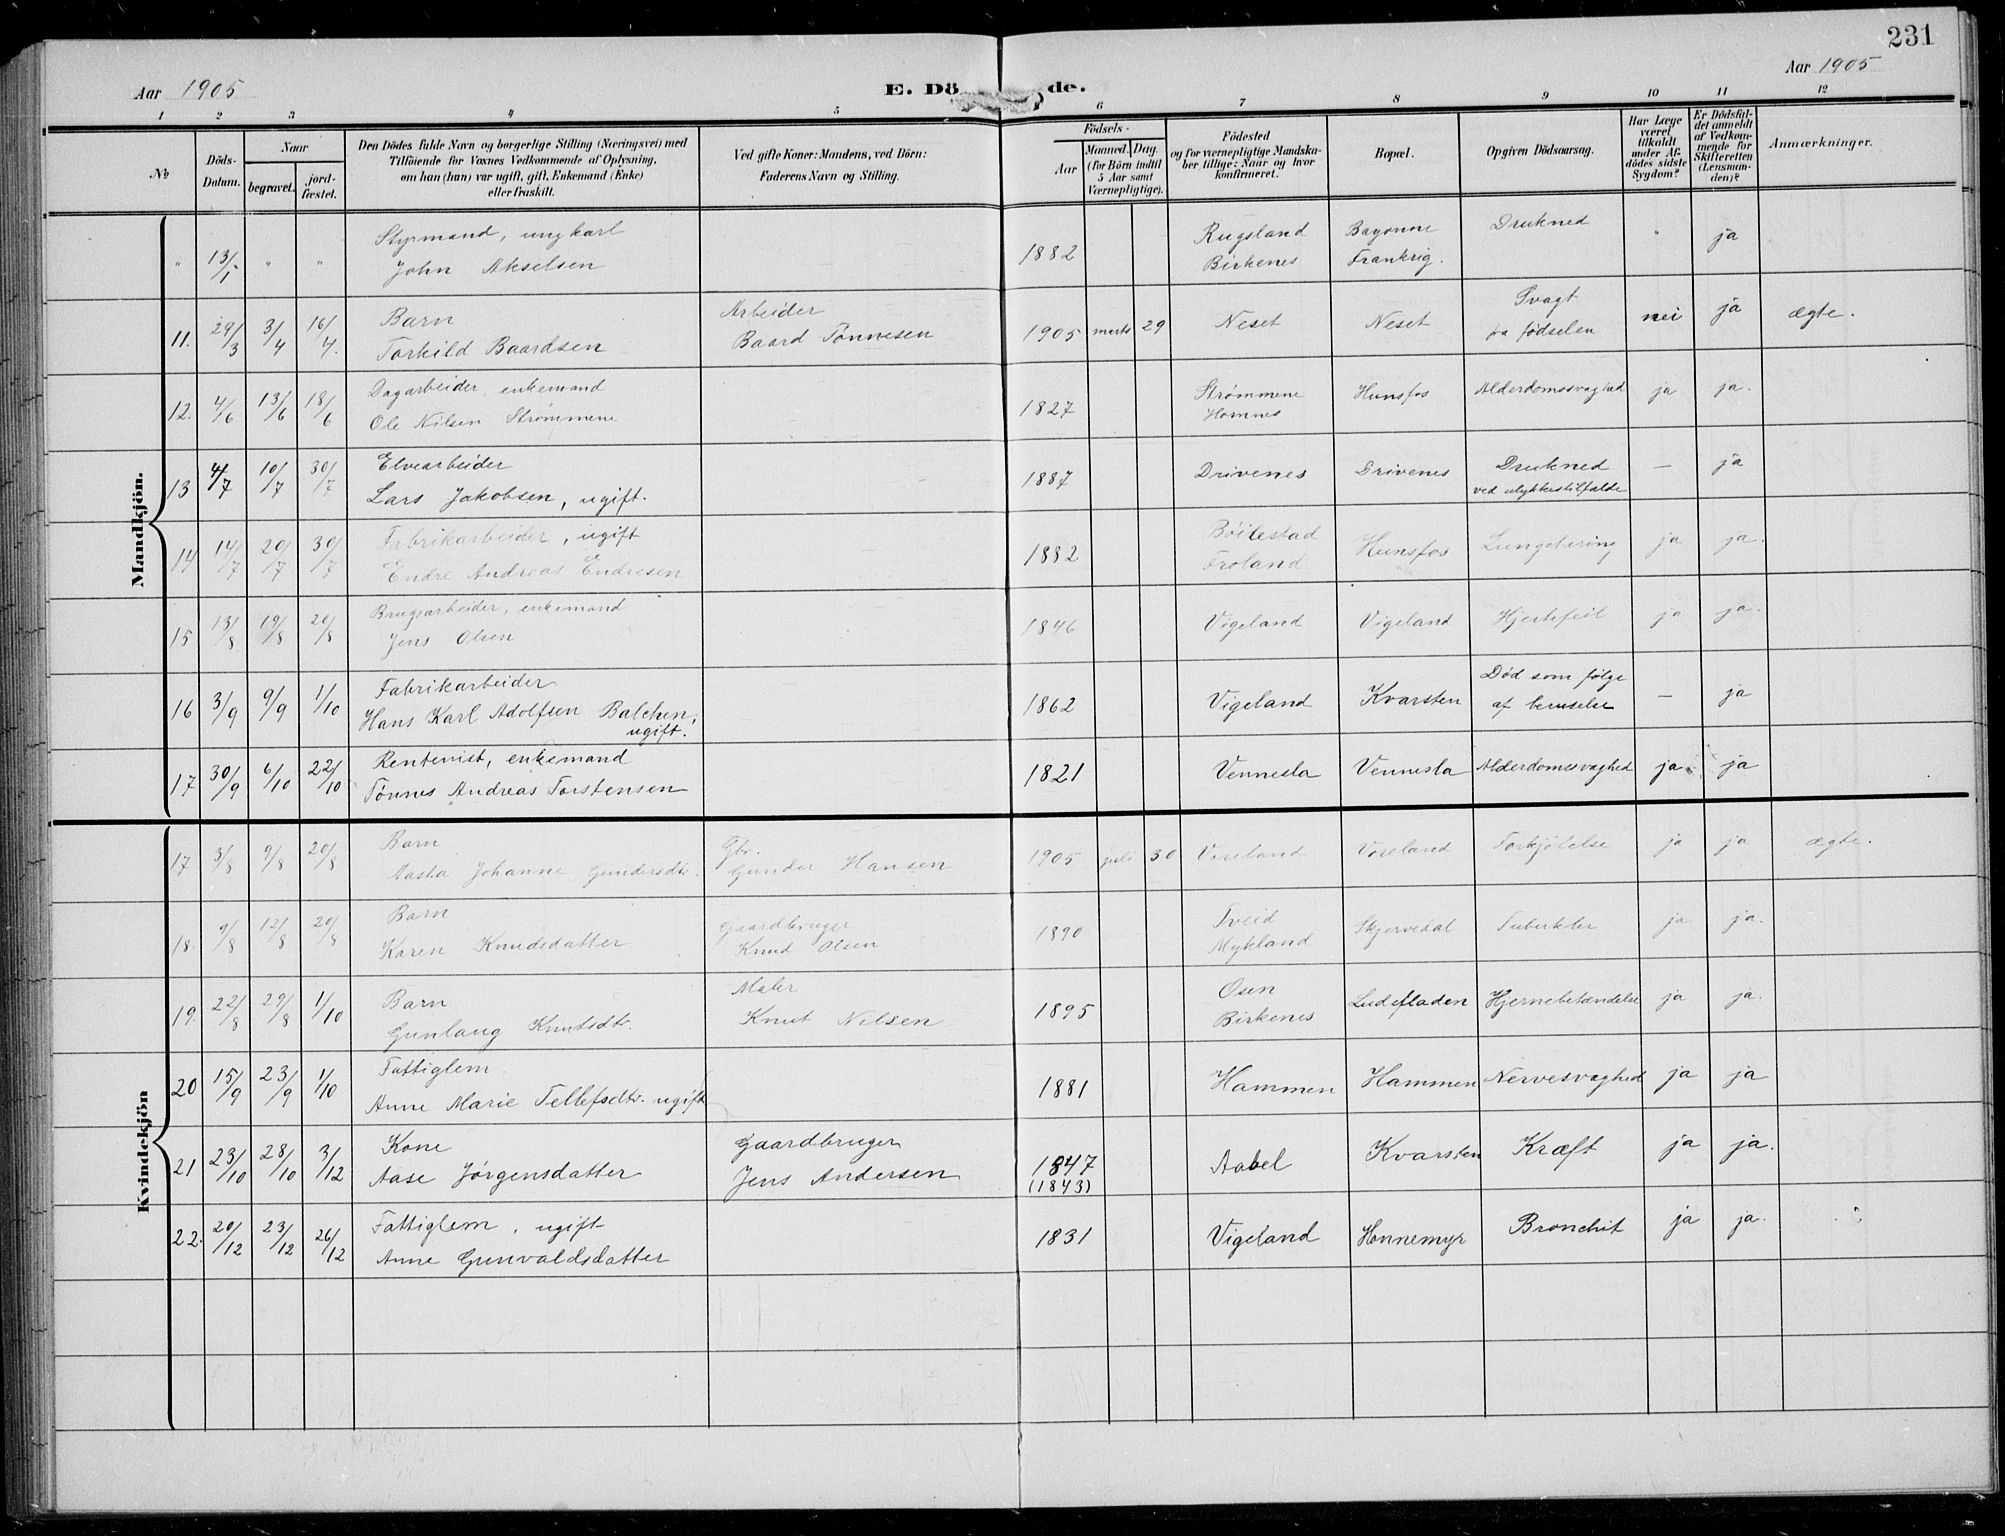 231
Aar 1905
E. Dö
de.
Aar 1905
1 2 3 4 5 6 7 8 9 10 11 12
No
Döds-Datum.
Naar
begravet.
jord-fæstet.
Den Dödes fulde Navn og borgerlige Stilling (Næringsvei) med
Tilföiende for Voxnes Vedkommende af Oplysning,
om han (hun) var ugift, gift, Enkemand (Enke)
eller fraskilt.
Ved gifte Koner: Mandens, ved Börn:
Faderens Navn og Stilling.
Födsels-
Aar
Maaned. Dag.
(for Börn indtil
5 Aar samt
Værnepligtige).
Födested
og for værnepligtige Mandska-
ber tillige: Naar og hvor
konfirmeret.
Bopæl.
Opgiven Dödsaarsag.
Har Læge
været
tilkaldt
under Af-
dödes sidste
Sygdom?
Er Dödsfal-
det anmeldt
af Vedkom-
mende for
Skifteretten
(Lensman-
den)?
Anmærkninger.
Mandkjön.
" 13/1 " " Styrmand, ungkarl
John Akselsen 1882 Rugsland
Birkenes Bayonne
Frankrig. Drukned " ja
11. 29/3 3/4 16/4. Barn
Torkild Baardsen Arbeider
Baard Tønnesen 1905 marts 29 Neset Neset Svagt
fra fødselen nei ja ægte.
12. 4/6 13/6 18/6 Dagarbeider, enkemand
Ole Nilsen Strømmene 1827 Strømmene
Homnes Hunsfos Alderdomssvaghed ja ja.
13 4/7 10/7 30/7 Elvearbeider
Lars Jakobsen, ugift. 1887 Drivenes Drivenes Drukned
ved ulykkestilfælde — ja
14 14/7 20/7 30/7 Fabrikarbeider, ugift
Endre Andreas Endresen 1882 Bøilestad
Froland Hunsfos Lungetæring ja ja.
15 13/8 19/8 20/8 Brugsarbeider, enkemand
Jens Olsen 1846 Vigeland Vigeland Hjertefeil ja ja.
16 3/9 9/9 1/10 Fabrikarbeider
Hans Karl Adolfsen Balchen,
ugift. 1862 Vigeland Kvarsten Død som følge
af beruselse — ja
17 30/9 6/10 22/10 Rentenist, enkemand
Tønnes Andreas Torstensen 1821 Vennesla Vennesla Alderdomssvaghed ja ja
Kvindekjön
17 3/8 9/8 20/8 Barn
Aasta Johanne Gundersdtr. Gbr.
Gunder Hansen 1905 juli 30 Voreland Voreland Forkjølelse ja ja ægte.
18. 9/8 12/8 20/8 Barn
Karen Knudsdatter Gaardbruger
Knud Olsen 1890 Tveid
Mykland Skjervedal Tuberkler ja ja.
19. 22/8 29/8 1/10 Barn
Gunlaug Knutsdtr. Maler
Knut Nilsen 1895 Osen
Birkenes Ludefladen Hjernebetændelse ja ja.
20 15/9 23/9 1/10 Fattiglem
Anne Marie Tellefsdtr. ugift 1881 Hammen Hammen Nervesvaghed ja ja
21 23/10 28/10 3/12 Kone
Aase Jørgensdatter Gaardbruger
Jens Andersen 1847
(1843) Aabel Kvarsten Kræft ja ja.
22. 20/12 23/12 26/12 Fattiglem, ugift
Anne Gunvaldsdatter 1831 Vigeland Honnemyr Bronchit ja ja.